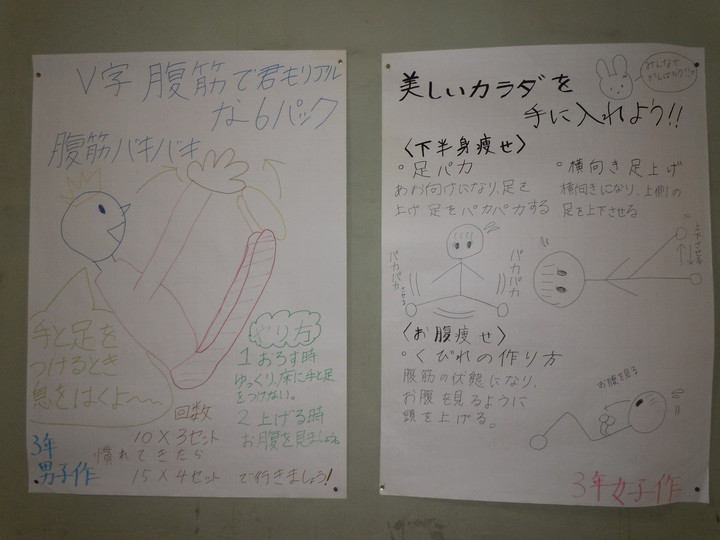 V字 腹筋で君もリアル
な6パック
腹筋バキバキ
手と足を
つけるとき
息をはくよ〜〜
やり方
1 おろす時
ゆっくり、床に手と足
をつけない。
2 上げる時
お腹を見ましょう
回数
10×3セット
慣れてきたら
15×4セット で行きましょう!
3年
男子作
みんなで
がんばろう!!
美しいカラダを
手に入れよう!!
〈下半身痩せ〉
・足パカ
あお向けになり、足を
上げ 足をパカパカする
・横向き足上げ
横向きになり、上側の
足を上下させる
パカパカさせる
パカパカ
上下させる
〈お腹痩せ〉
・くびれの作り方
腹筋の状態になり、
お腹を見るように
頭を上げる。
お腹を見る
3年女子作